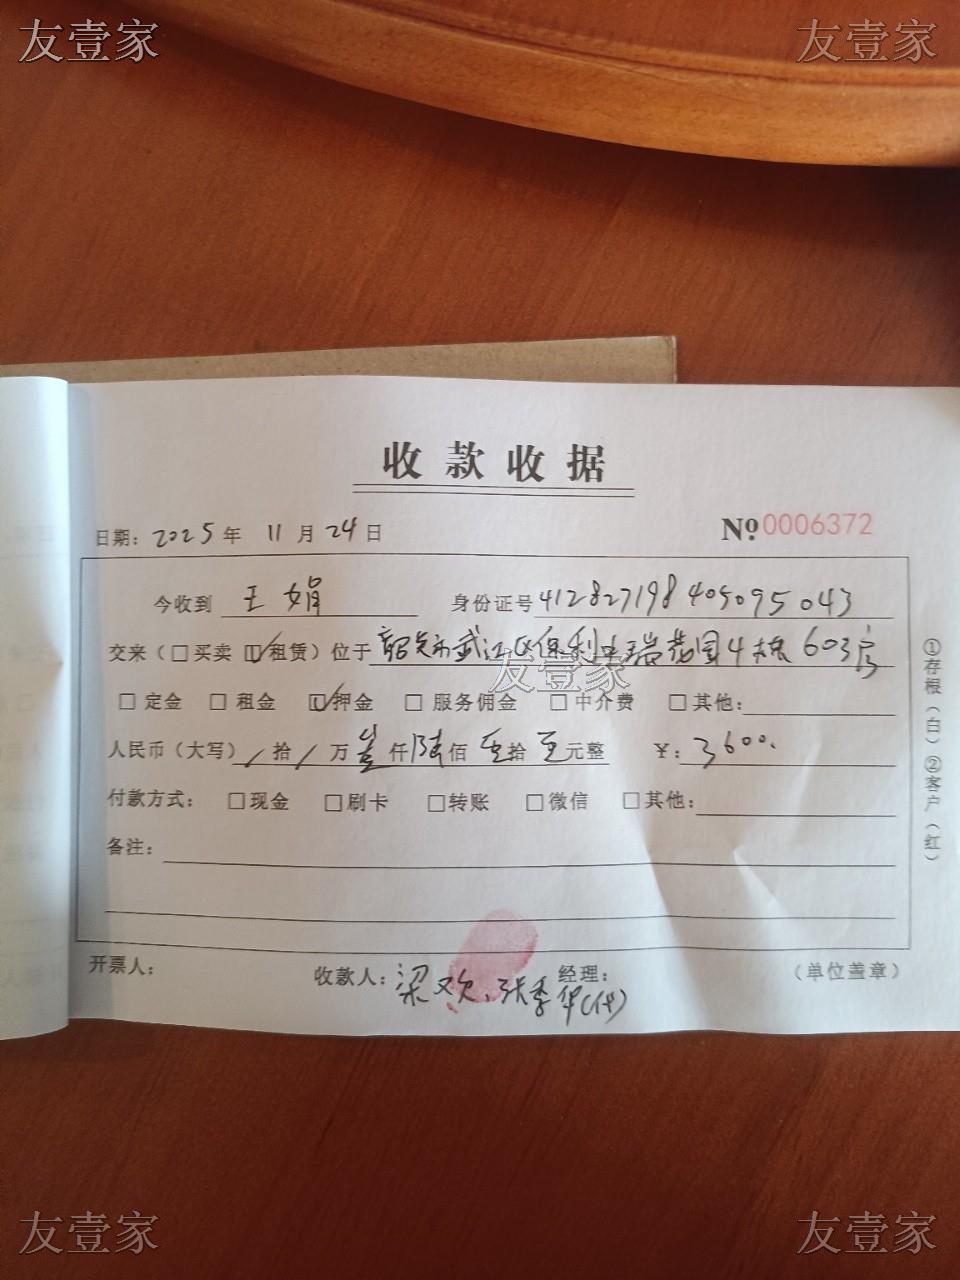 友壹家 友壹家
收款收据
日期: 2025年 11月 24日 No. 0006372
今收到 王娟 身份证号 412827198405095043
交来（□买卖 ☑租赁）位于 韶关市武江区保利中瑞花园4栋603房
友壹家
□ 定金 □ 租金 ☑ 押金 □ 服务佣金 □ 中介费 □ 其他:
人民币（大写） / 拾 / 万 叁 仟 陆 佰 零 拾 零 元整 ¥: 3600.
付款方式: □现金 □刷卡 □转账 □微信 □其他:
备注:
开票人: 收款人: 梁欢、张季华(代) 经理: （单位盖章）
①存根（白）②客户（红）
友壹家 友壹家